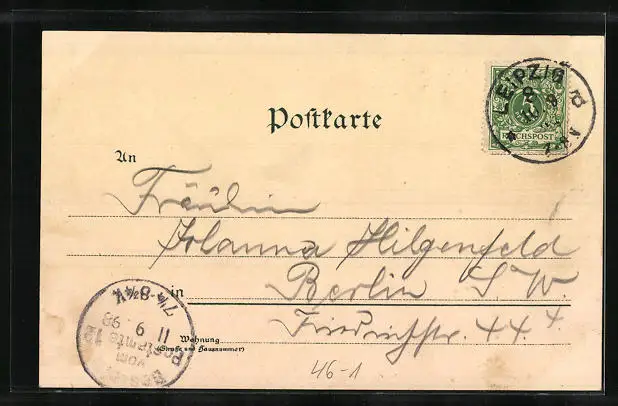 Postkarte
LEIPZIG
5
REICHSPOST
An
Fräulein
Johanna Hilgenfeld
in
Berlin S.W.
Wohnung
(Straße und Hausnummer)
Friedrichstr. 44.
7¼-8½V.
11 9. 98
Postamte 12
vom
Bestellt
46-1